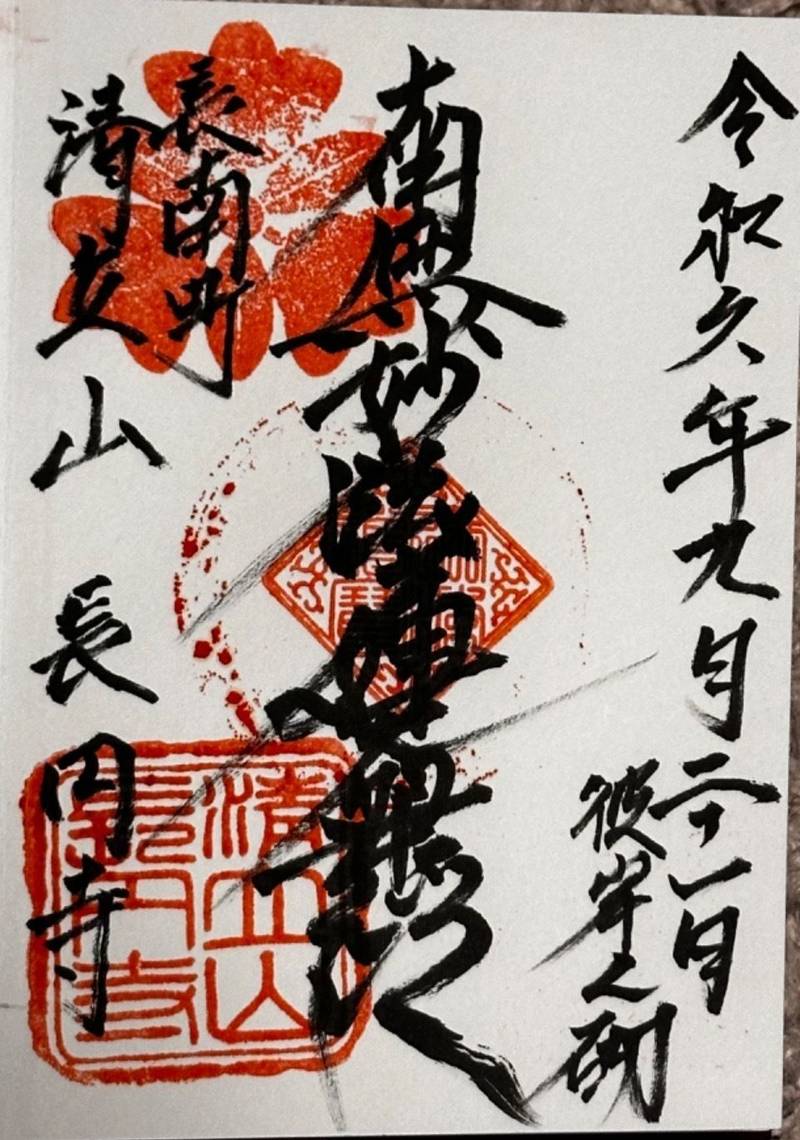 令和六年九月二十一日
彼岸之砌
南無妙法蓮華経
長南町
清立山 長円寺
清立山
長円寺